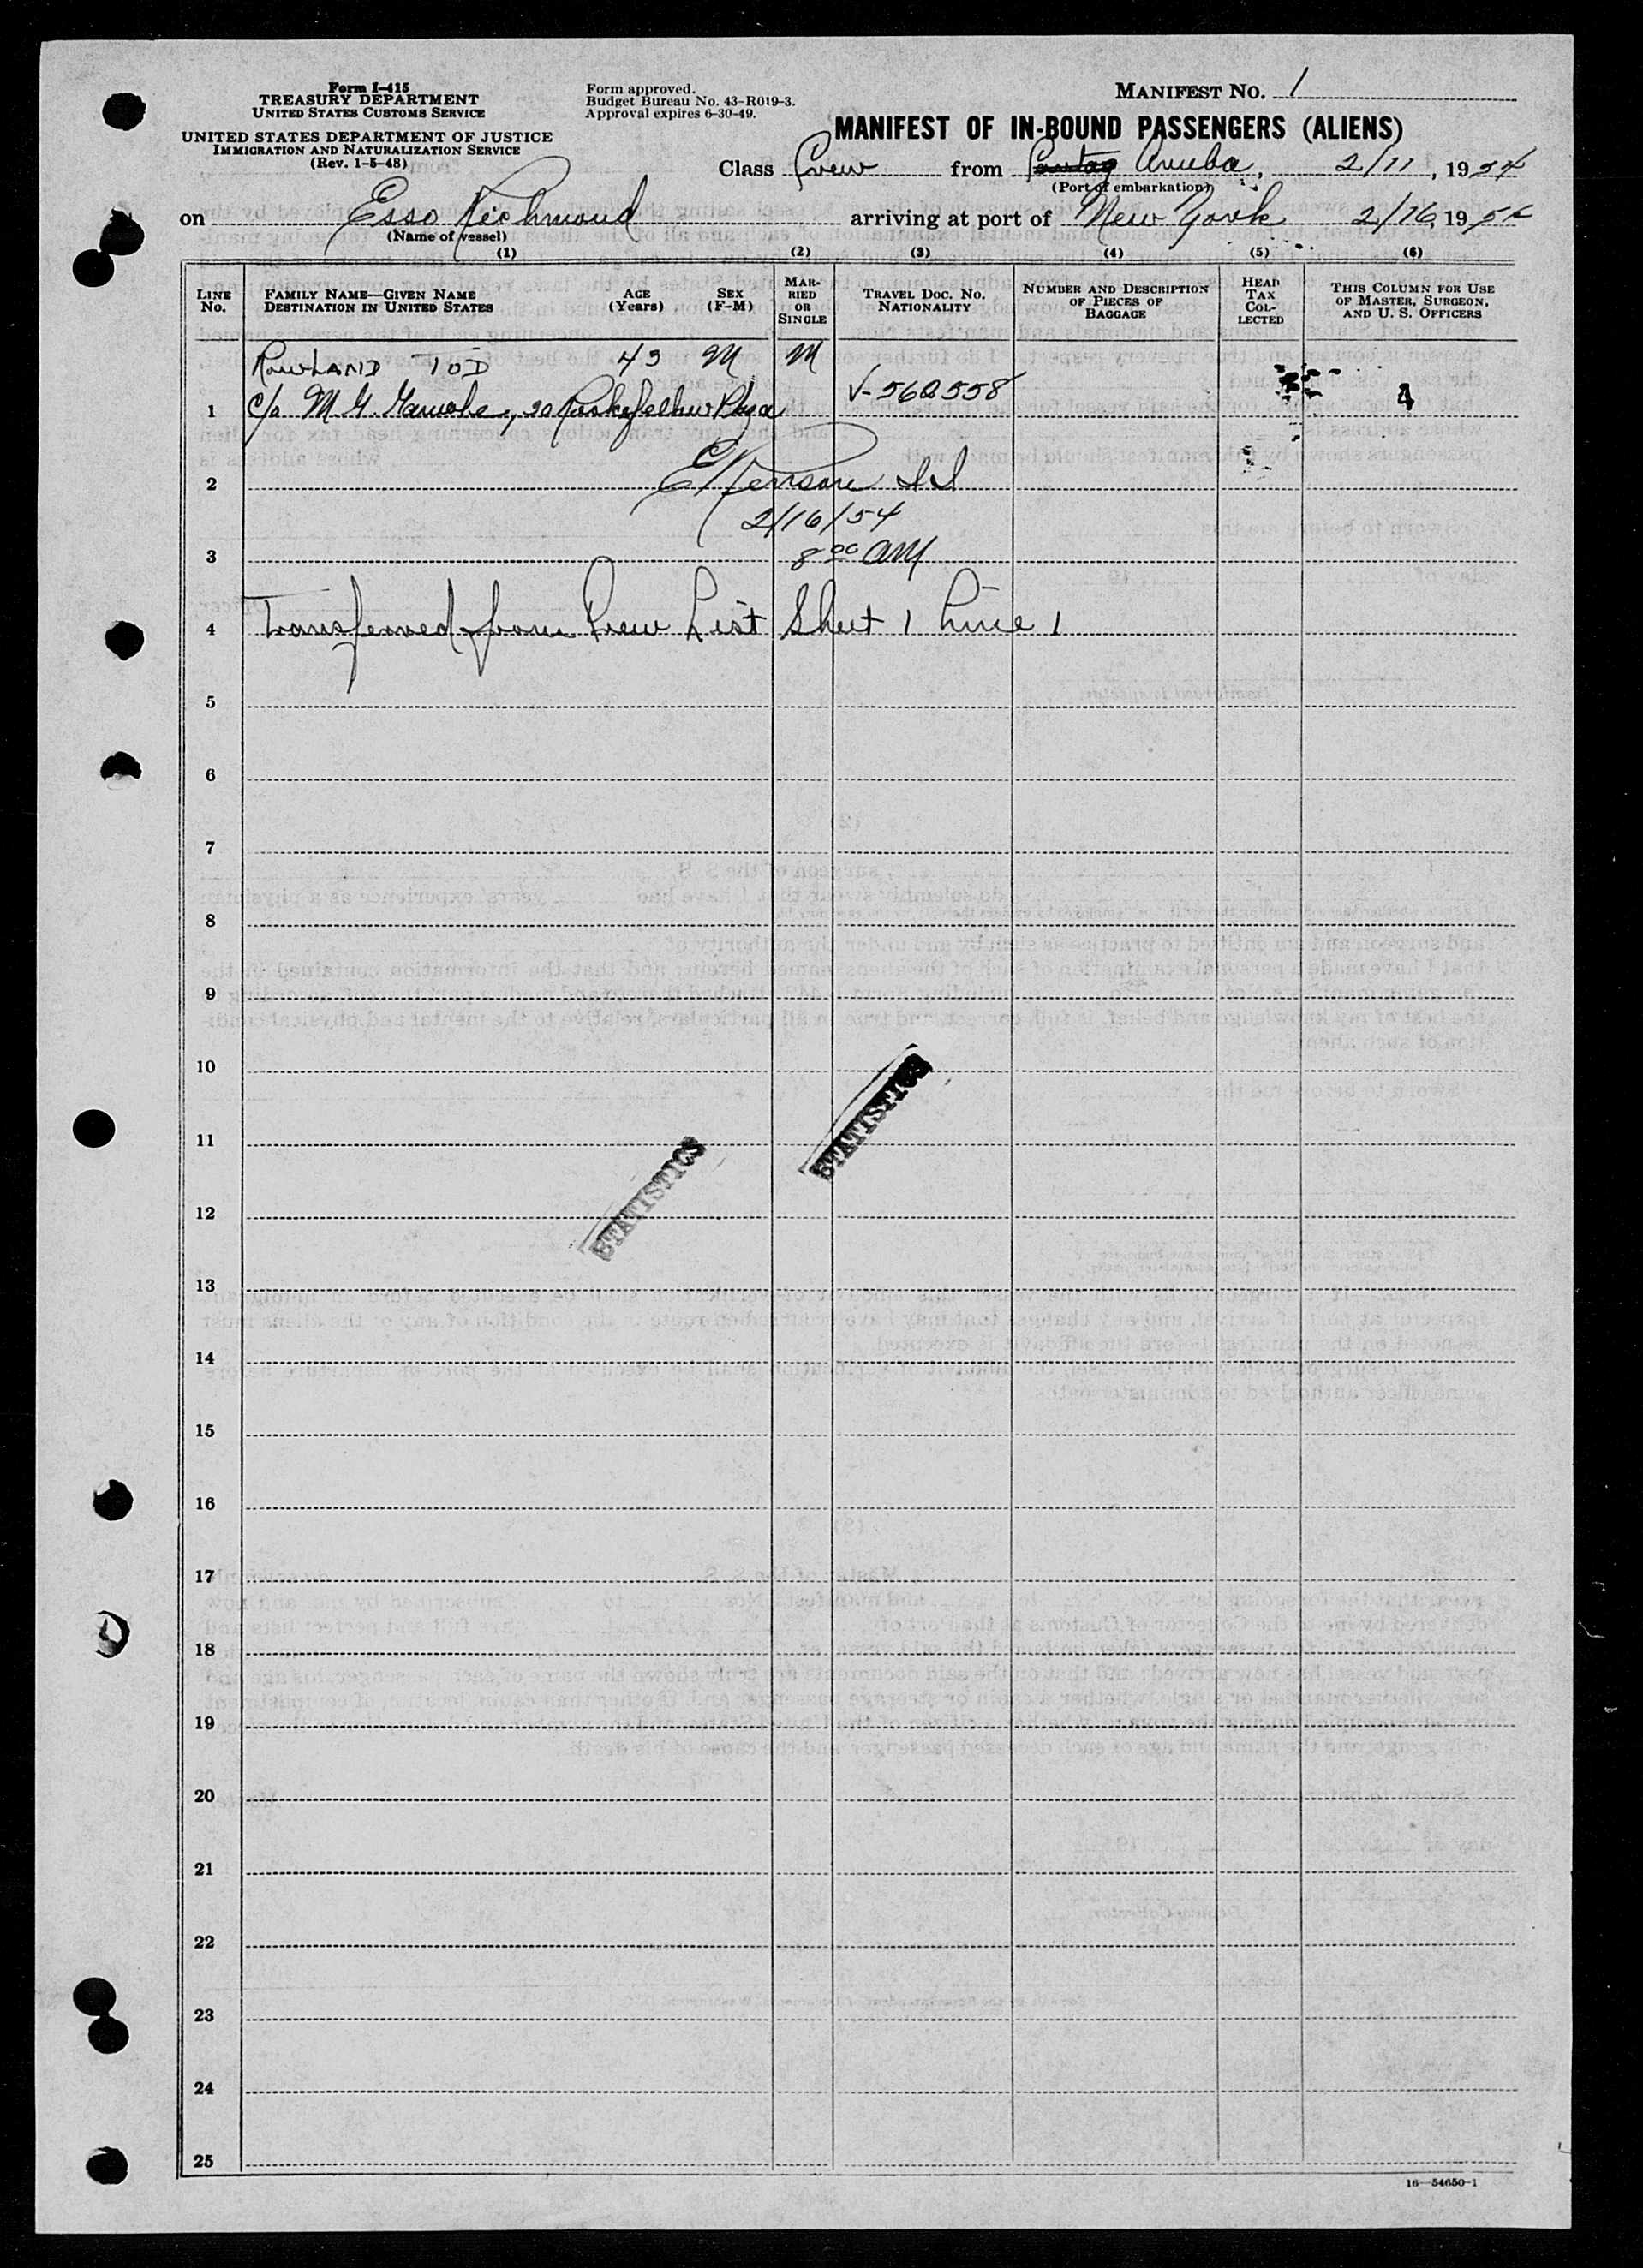 Form I-415
TREASURY DEPARTMENT
UNITED STATES CUSTOMS SERVICE
UNITED STATES DEPARTMENT OF JUSTICE
IMMIGRATION AND NATURALIZATION SERVICE
(Rev. 1-5-48)
Form approved.
Budget Bureau No. 43-R019-3.
Approval expires 6-30-49.
MANIFEST NO. 1
MANIFEST OF IN-BOUND PASSENGERS (ALIENS)
Class Crew from Aruba, 2/11, 1954
(Port of embarkation)
on Esso Richmond arriving at port of New York 2/16, 195
(Name of vessel)
(1) (2) (3) (4) (5) (6)
LINE No. FAMILY NAME—GIVEN NAME DESTINATION IN UNITED STATES AGE (Years) SEX (F-M) MARRIED OR SINGLE TRAVEL DOC. NO. NATIONALITY NUMBER AND DESCRIPTION OF PIECES OF BAGGAGE HEAD TAX COLLECTED THIS COLUMN FOR USE OF MASTER, SURGEON, AND U. S. OFFICERS
ROWLAND TOD 43 M M
V-562558
1 c/o M. G. 30 Rockefeller Plaza
2
2/16/54
3 8 00 AM
4 Transferred from Crew List Sheet 1 Line 1
5
6
7
8
9
10
STATISTICS
11
STATISTICS
12
13
14
15
16
17
18
19
20
21
22
23
24
25
16—54650-1